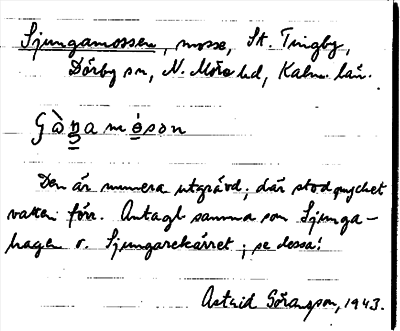 Sjungamossen, mosse, St. Tingby,
Dörby sn, N. Möre hd, Kalm. län.
Den är numera utgrävd; där stod mycket
vatten förr. Antagl samma som Sjunga-
hagen o. Sjungarekärret; se dessa!
Astrid Göransson, 1943.